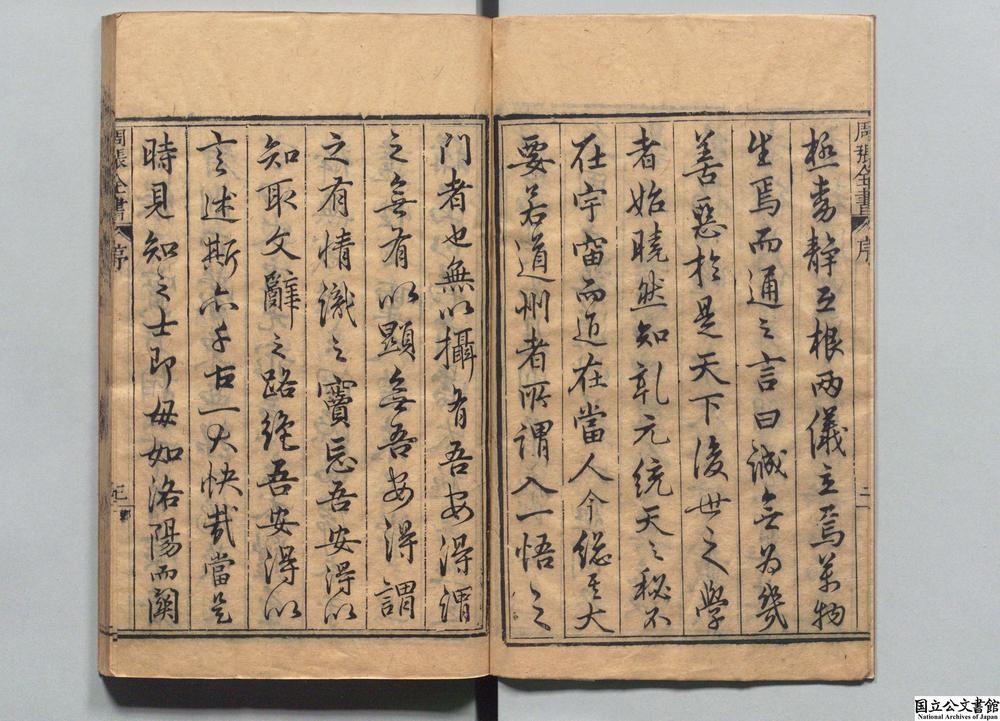 周張全書 序 二
極動靜互根兩儀立焉萬物
生焉而通之言曰誠無為幾
善惡於是天下後世之學
者始曉然知乾元統天之秘不
在宇宙而近在當人今總其大
要若道州者所謂入一悟之
門者也無以攝有吾安得謂
之無有以顯無吾安得謂
之有情識之竇忘吾安得以
知取文辭之路絕吾安得以
言述斯亦千古一大快哉當是
時見知之士即毋如洛陽而關
周張全書 序
国立公文書館
National Archives of Japan